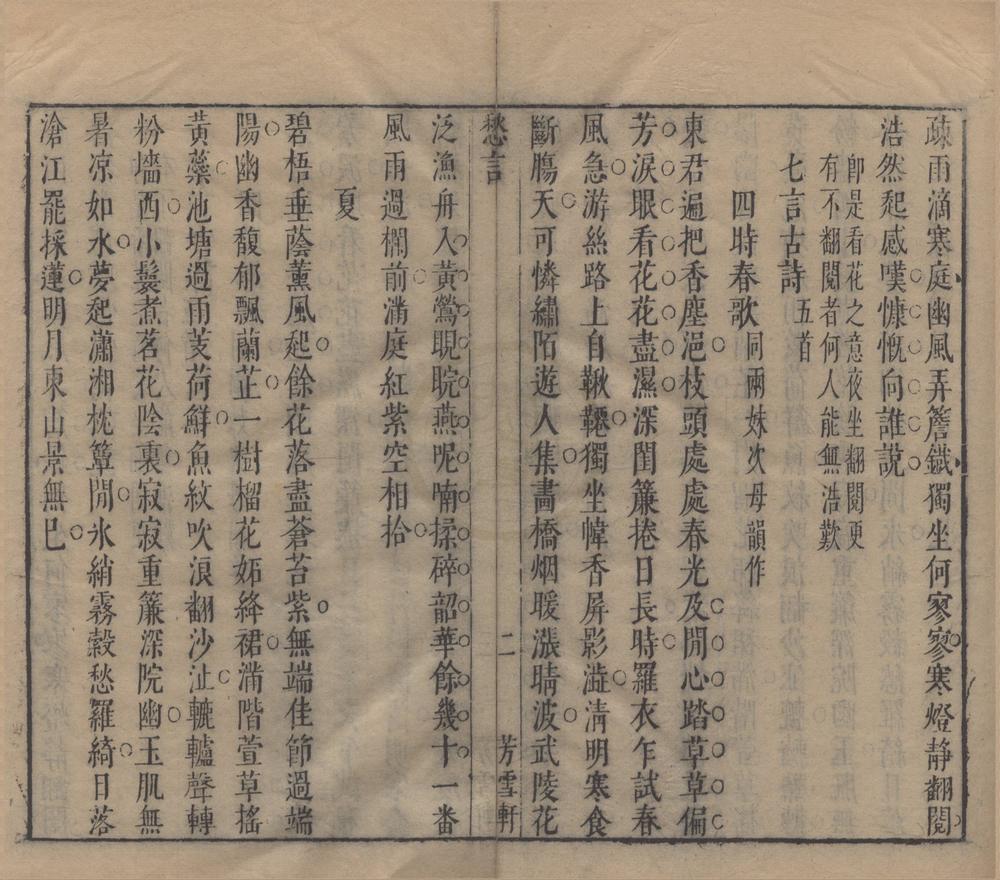 疎雨滴寒庭幽風弄簷鐵獨坐何寥寥寒燈靜翻閱
浩然起感嘆慷慨向誰說
卽是看花之意夜坐翻閱便
有不翻閱者何人能無浩歎
七言古詩 五首
四時春歌 同兩妹次母韻作
東君遍把香塵浥枝頭處處春光及閒心踏草草偏
芳淚眼看花花盡濕深閨簾捲日長時羅衣乍試春
風急游絲路上自鞦韆獨坐幃香屏影澁淸明寒食
斷膓天可憐繡陌遊人集畵橋烟暖漲晴波武陵花
愁言 二 芳雪軒
泛漁舟入黃鶯睍睆燕呢喃揉碎韶華餘幾十一番
風雨過欄前滿庭紅紫空相拾
夏
碧梧垂蔭薰風起餘花落盡蒼苔紫無端佳節過端
陽幽香馥郁飄蘭芷一樹榴花妬絳裙滿階萱草搖
黃蘂池塘過雨芰荷鮮魚紋吹浪翻沙沚轆轤聲轉
粉墻西小鬟煮茗花陰裏寂寂重簾深院幽玉肌無
暑凉如水夢起瀟湘枕簟閒氷綃霧縠愁羅綺日落
滄江罷採蓮明月東山景無巳